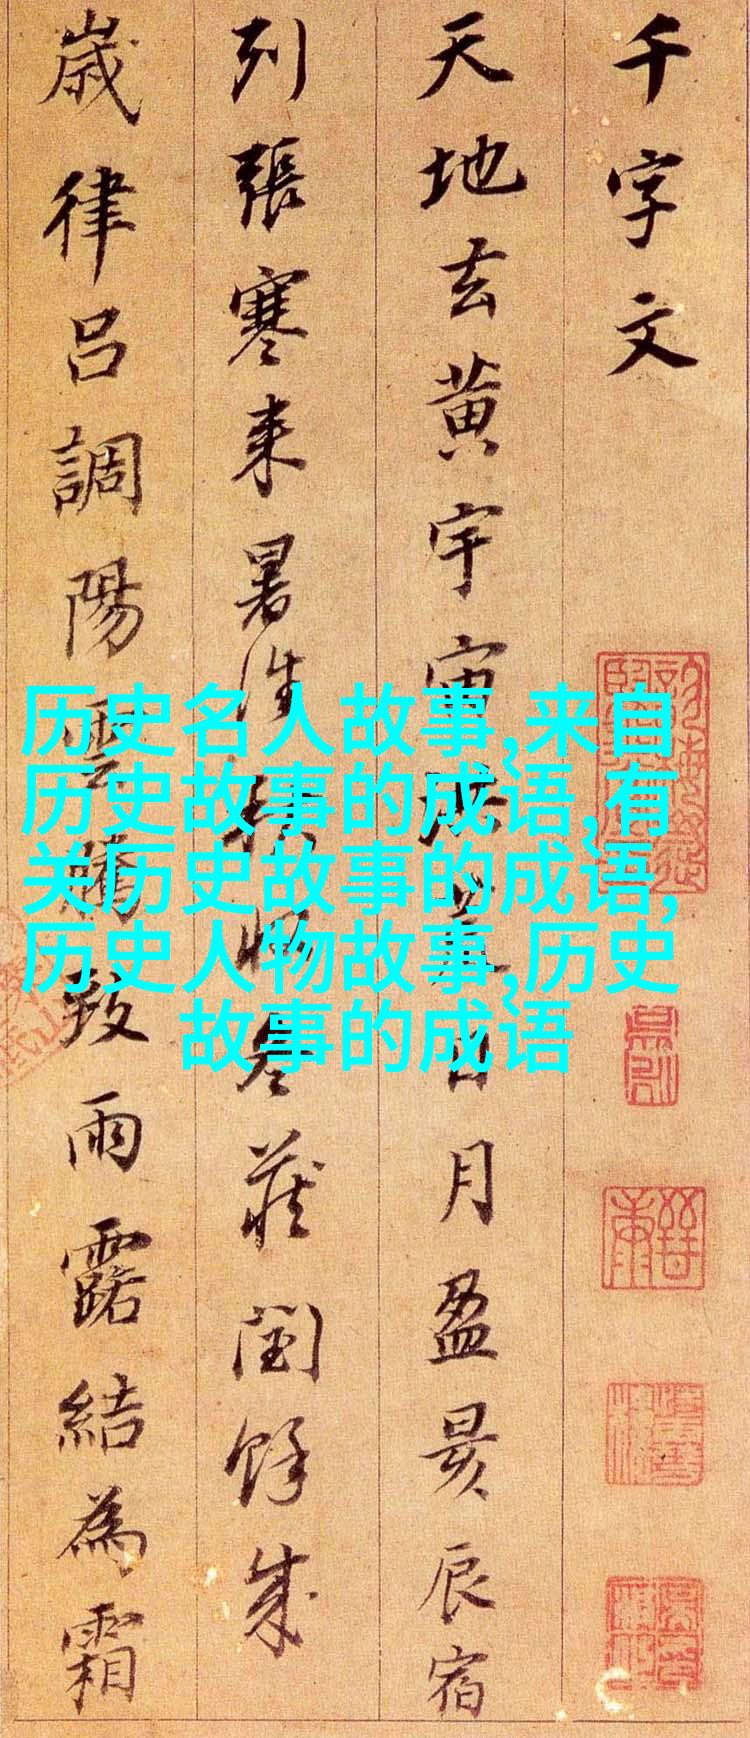 千字文
天地玄黄宇宙洪荒日月盈昃辰宿
列張寒来暑往秋收冬蔵閏餘成
歲律吕調陽雲騰致雨露結為霜
历史名人故事,来自
历史故事的成语,有
关历史故事的成语,
历史人物故事,历史
故事的成语